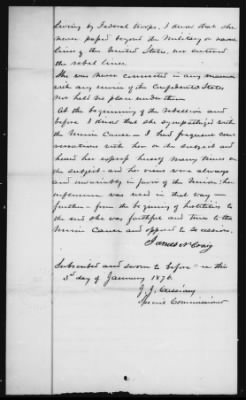 living by Federal troops, I know that she
never passed beyond the Military or naval
lines of the United States, nor entered
the rebel lines.
She was never connected in any manner
with any service of the Confederate States
nor held no place under them.
At the beginning of the rebellion and
before I know that she sympathized with
the Union Cause - I had frequent con-
versations with her on the subject and
heard her express herself many times on
the subject - and her views were always
and invariably in favor of the Union; her
influence was used in that way - and
further - from the beginning of hostilities to
the end she was faithful and true to the
Union Cause and opposed to secession.
James N Craig
Subscribed and sworn to before me this
3d day of January 1876.
J. J.
Special Commissioner